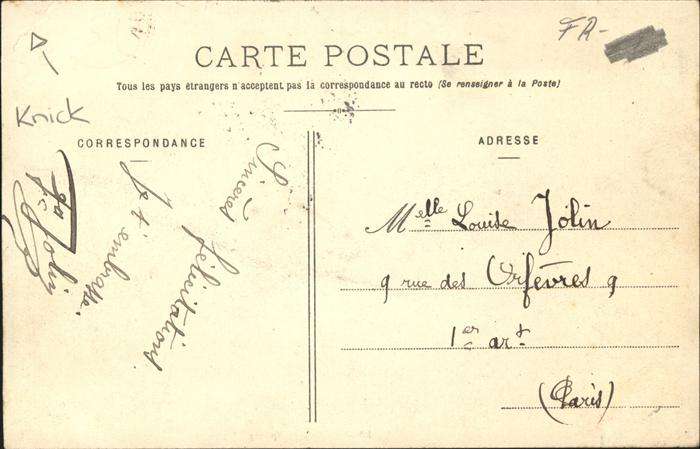 FR-
CARTE POSTALE
Tous les pays étrangers n'acceptent pas la correspondance au recto (Se renseigner à la Poste)
Knick
CORRESPONDANCE
Sincères
félicitations
Je t'embrasse.
Jolin
ADRESSE
Melle Louise Jolin
9 rue des Orfèvres 9
1er art
(Paris)